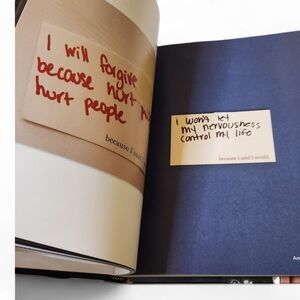 I will forgive
because hurt
hurt people
because I said I
i won't let
my nervousness
control my life
because I said I would.